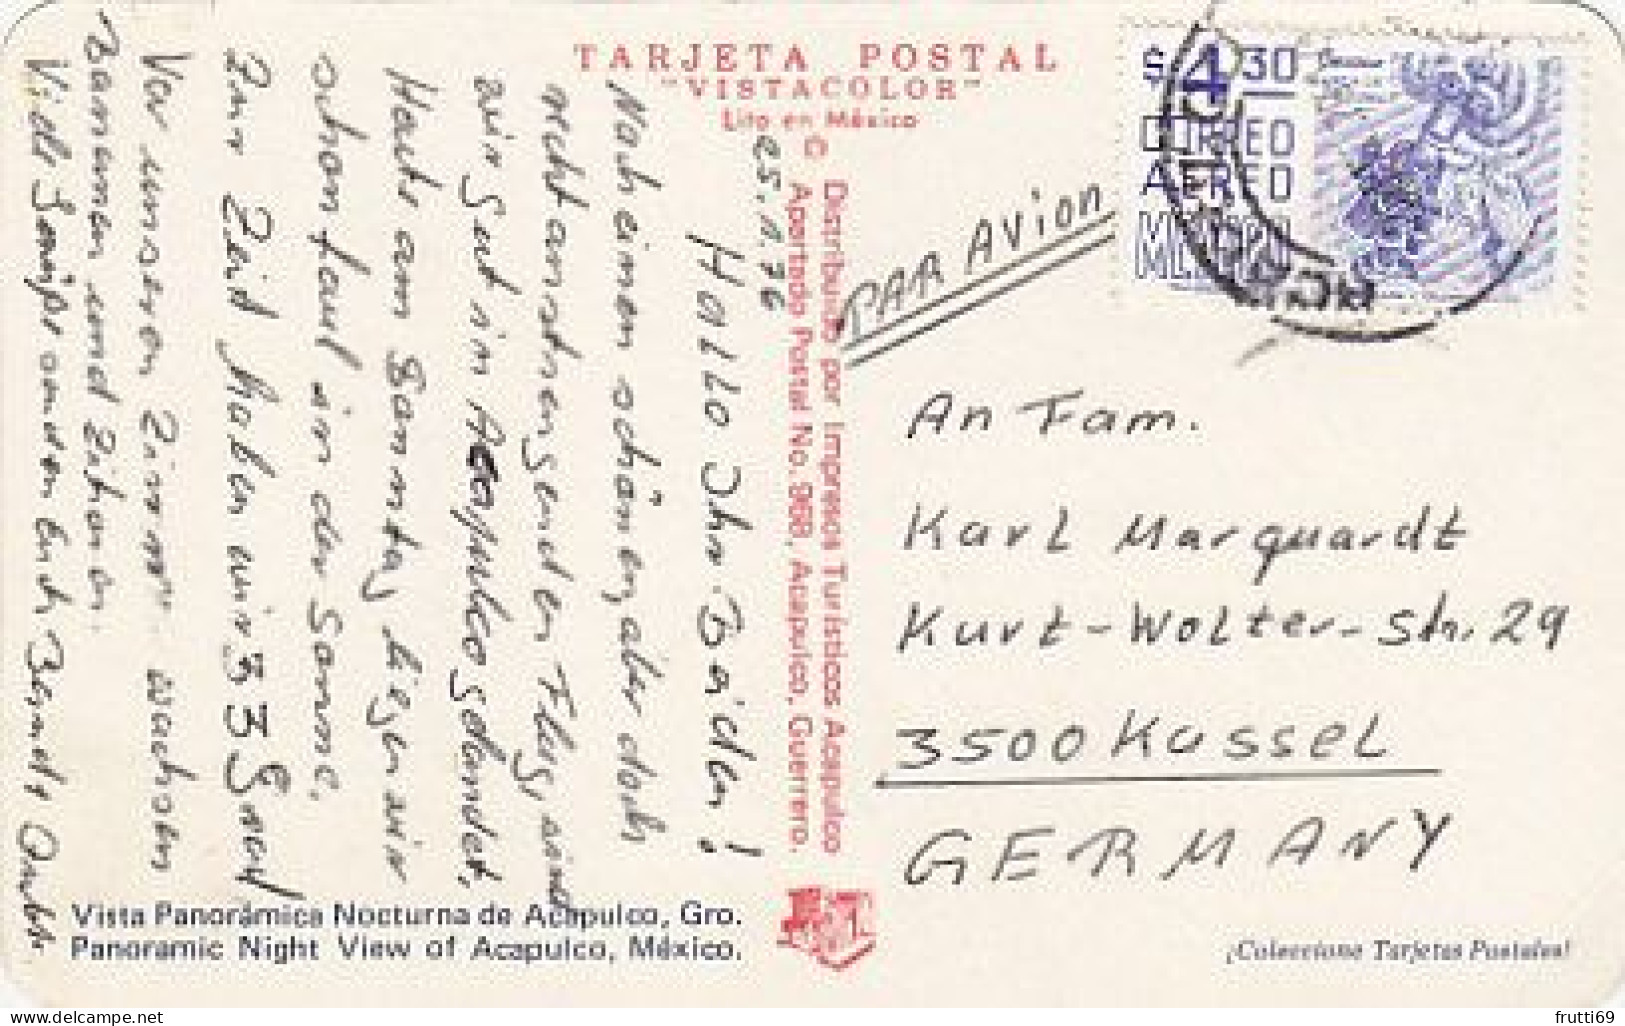 TARJETA POSTAL
"VISTACOLOR"
Lito en México
$4.30
CORREO
AEREO
MEXICO
PAR AVION
25.11.76
Hallo Ihr Beiden!
Nach einem schönen, aber doch
recht anstrengenden Flug, sind
wir gut in Acapulco gelandet.
Heute am Samstag liegen wir
schon faul in der Sonne.
Zur Zeit haben wir 33 Grad
Vor unseren Zimmern wachsen
Bananen und
Viele Grüße
An Fam.
Karl Marquardt
Kurt-Wolter-Str. 29
3500 Kassel
GERMANY
Distribuida por Impresos Turísticos Acapulco
Apartado Postal No. 968, Acapulco, Guerrero.
Vista Panorámica Nocturna de Acapulco, Gro.
Panoramic Night View of Acapulco, México.
¡Coleccione Tarjetas Postales!
frutti69